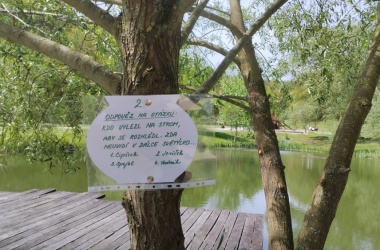 2
ODPOVĚZ NA OTÁZKU:
KDO VYLEZL NA STROM,
ABY SE ROZHLÉDL, ZDA
NEUVIDÍ V DÁLCE SVĚTÝLKO...
1. Čipíšek 2. Jeníček
3. Spejbl 4.